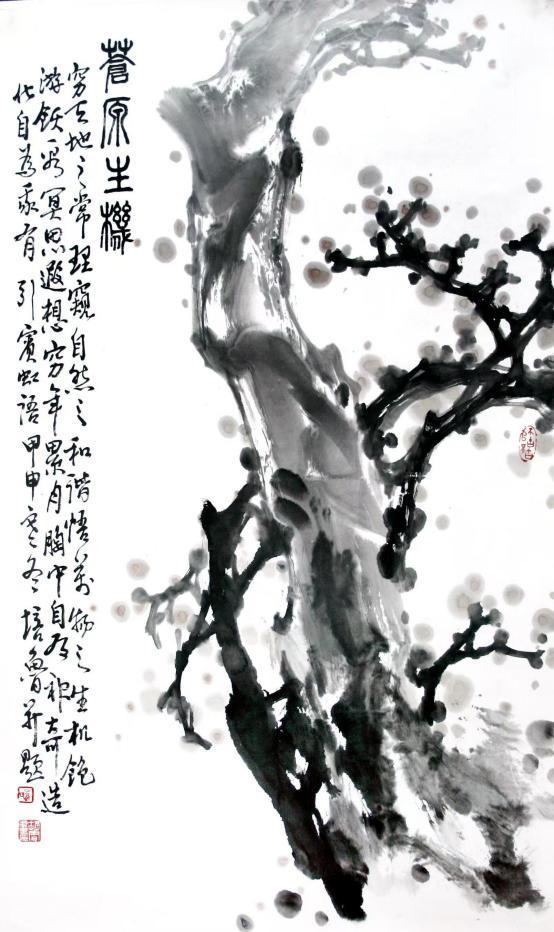 蒼原生機
穷天地之常理窺自然之和谐悟萬物之生机飽
游飫看冥思遐想穷年累月胸中自具神奇造
化自為我有 引賓虹語 甲申寒冬 培魯并題